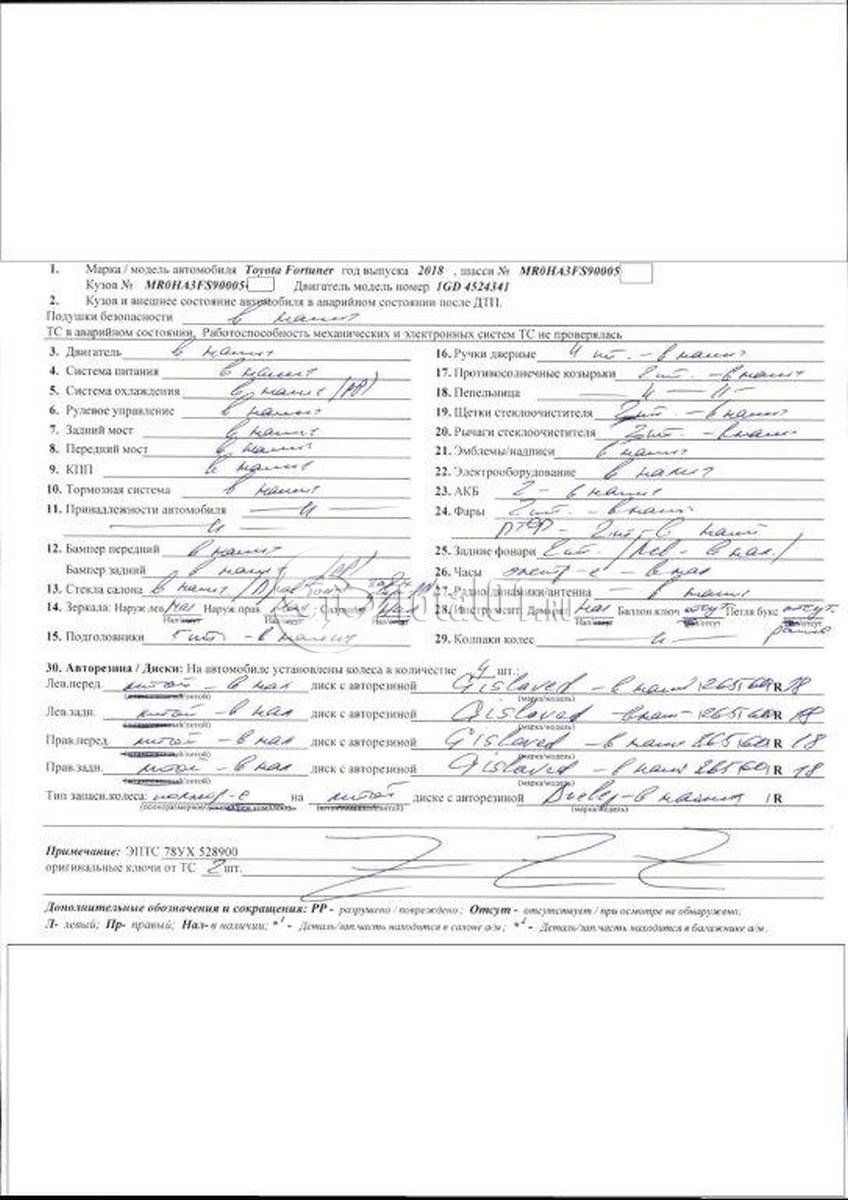 1. Марка / модель автомобиля Toyota Fortuner год выпуска 2018 , шасси № MR0HA3FS90005
Кузов № MR0HA3FS90005 Двигатель модель номер 1GD 4524341
2. Кузов и внешнее состояние автомобиля в аварийном состоянии после ДТП.
Подушки безопасности в налич
ТС в аварийном состоянии, Работоспособность механических и электронных систем ТС не проверялась
3. Двигатель в налич
4. Система питания в налич
5. Система охлаждения в налич (РР)
6. Рулевое управление в налич
7. Задний мост в налич
8. Передний мост в налич
9. КПП в налич
10. Тормозная система в налич
11. Принадлежности автомобиля — и —
— и —
12. Бампер передний в налич
Бампер задний в налич (РР)
13. Стекла салона в налич
14. Зеркала: Наруж.лев нал Наруж прав. нал Салон нал
Нал/отсут Нал/отсут Нал/отсут
15. Подголовники 5 шт - в налич
16. Ручки дверные 4 шт. - в налич
17. Противосолнечные козырьки 2 шт. - в налич
18. Пепельница — и —
19. Щетки стеклоочистителя - в налич
20. Рычаги стеклоочистителя - в налич
21. Эмблемы/надписи в налич
22. Электрооборудование в налич
23. АКБ 2 - в налич
24. Фары 2 шт. - в налич
ПТФ - 2 шт - в налич
25. Задние фонари 2 шт. (лев - в нал.)
26. Часы электр-е - в нал
27. Радио/динамики/антенна - в налич
28. Инструмент: Домкрат нал Баллон.ключ отсут Петля букс отсут.
Нал/отсут Нал/отсут Нал/отсут
29. Колпаки колес — и —
30. Авторезина / Диски: На автомобиле установлены колеса в количестве 4 шт.:
Лев.перед. литой - в нал диск с авторезиной Gislaved - в налич 265/60 R 18
(марка/модель)
Лев.задн. литой - в нал диск с авторезиной Gislaved - в налич 265/60 R 18
(марка/модель)
Прав.перед. литой - в нал диск с авторезиной Gislaved - в налич 265/60 R 18
(марка/модель)
Прав.задн. литой - в нал диск с авторезиной Gislaved - в налич 265/60 R 18
(марка/модель)
Тип запасн.колеса: на литой диске с авторезиной - в налич / R
(марка/модель)
Примечание: ЭПТС 78УХ 528900
оригинальные ключи от ТС 2 шт.
Дополнительные обозначения и сокращения: РР - разрушено / повреждено ; Отсут - отсутствует / при осмотре не обнаружено;
Л- левый; Пр- правый; Нал- в наличии; *1 - Деталь/зап.часть находится в салоне а/м ; *2 - Деталь/зап.часть находится в багажнике а/м.
total01.ru